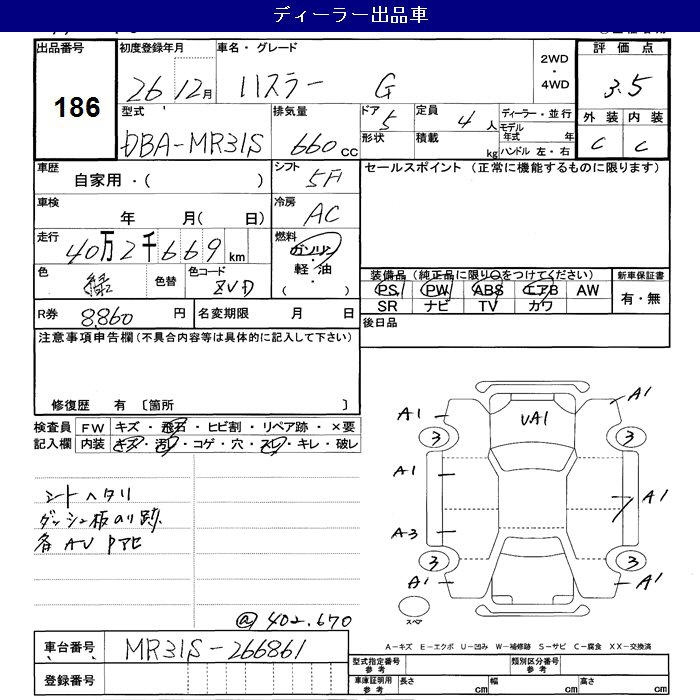 ディーラー出品車
出品番号 初度登録年月 車名・グレード 2WD・4WD 評価点
186 26 12月 ハスラー G 3.5
型式 排気量 ドア 5 定員 4人 ディーラー・並行 外装 内装
DBA-MR31S 660cc 形状 積載 kg モデル年式 年 C C
ハンドル 左・右
車歴 シフト セールスポイント (正常に機能するものに限ります)
自家用・( ) 5A
車検 冷房
年 月( 日) AC
走行 燃料
40万2千669km ガソリン・軽油・( )
色 緑 色替 色コード ZVD
装備品 (純正品に限り○をつけてください) 新車保証書
PS PW ABS エアB AW 有・無
SR ナビ TV カワ
R券 8860円 名変期限 月 日 後日品
注意事項申告欄(不具合内容等は具体的に記入して下さい)
修復歴 有 〔箇所 〕
検査員 FW キズ・飛石・ヒビ割・リペア跡・×要
記入欄 内装 キズ・汚レ・コゲ・穴・スレ・キレ・破レ
シートヘタリ
ダッシュ板のリ跡
各AV
A1 UA1 A1
3 3
A1 A1
A3
3 3
A1 A1
スペア
@402.670
A-キズ E-エクボ U-凹み W-補修跡 S-サビ C-腐食 XX-交換済
車台番号 MR31S-266861
登録番号
型式指定番号 参考 類別区分番号 参考
車庫証明用 参考 長さ cm 幅 cm 高さ cm